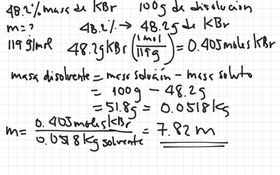 48.2% masa de KBr 100g de disolución
m=? 48.2% → 48.2g de KBr
119 g/mol 48.2g KBr (1mol/119g) = 0.405 moles KBr
masa disolvente = masa solución - masa soluto
= 100g - 48.2g
= 51.8g = 0.0518kg
m = 0.405 moles KBr / 0.0518 kg solvente = 7.82 m